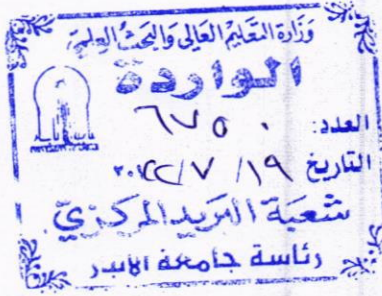 وزارة التعليم العالي والبحث العلمي
الواردة
العدد: ٦٧٥٠
التاريخ ١٩ / ٧ / ٢٠٢٢
شعبة البريد المركزي
رئاسة جامعة الانبار